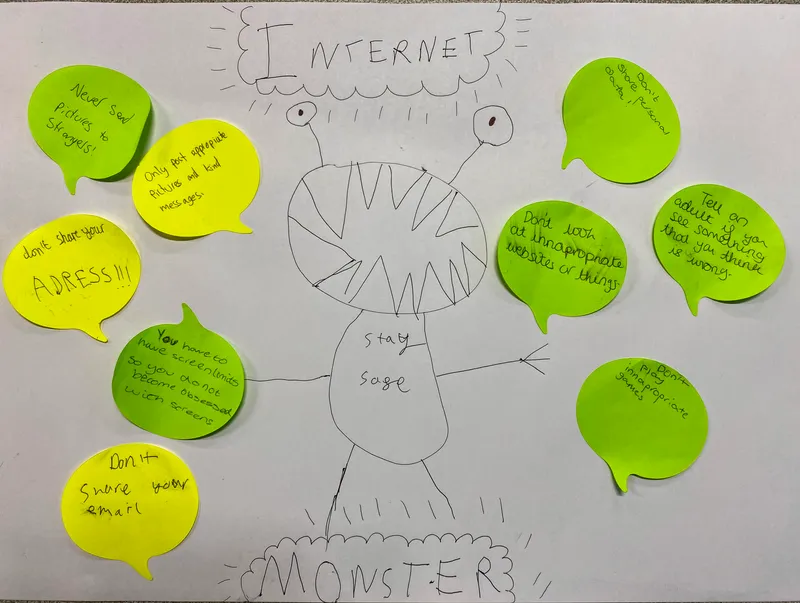 INTERNET
Never send
pictures to
Strangers!
Only post appropriate
pictures and kind
messages.
don't share your
ADRESS!!!
You have to
have screenlimits
so you do not
become obsessed
with screens
Don't
share your
email
Don't
share personal
data!!
Don't look
at innapropriate
websites or things
Tell an
adult if you
see something
that you think
is wrong.
Don't
play
innapropriate
games
stay
sage
MONSTER